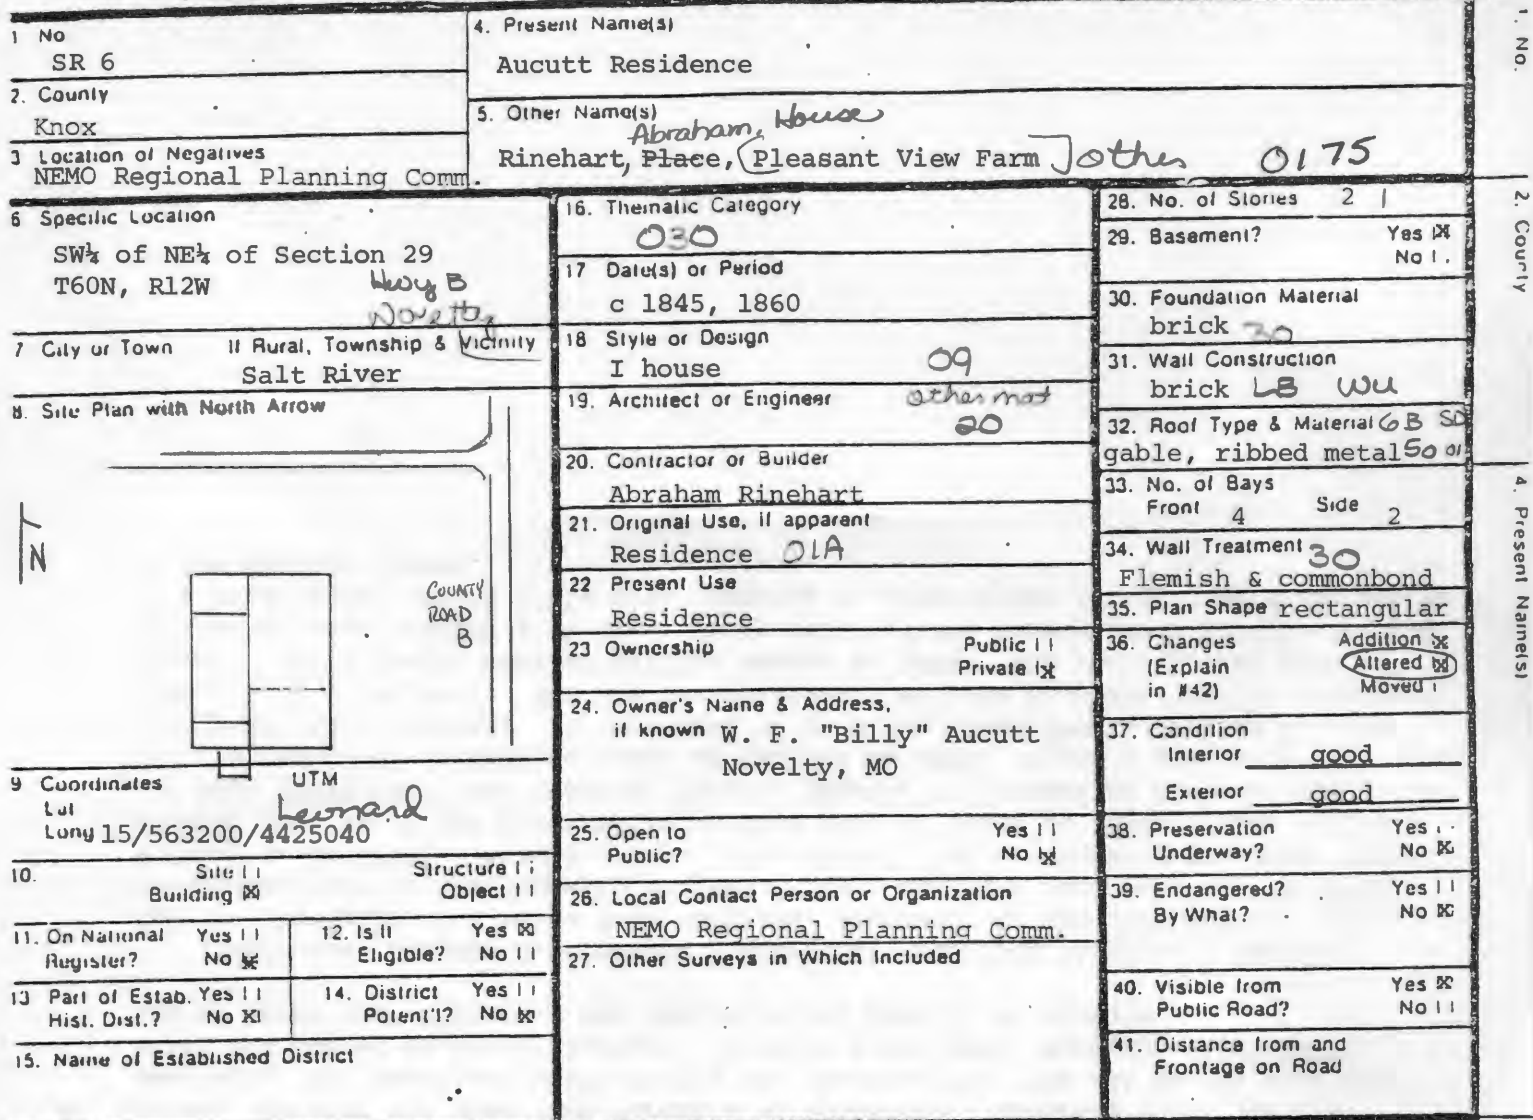 1 No
SR 6
2. County
Knox
3 Location of Negatives
NEMO Regional Planning Comm.
4. Present Name(s)
Aucutt Residence
5. Other Name(s)
Abraham, House
Rinehart, Place, (Pleasant View Farm ] other 0175
6 Specific Location
SW¼ of NE¼ of Section 29
T60N, R12W
Hwy B
7 City or Town If Rural, Township & Vicinity
Salt River
8. Site Plan with North Arrow
N
COUNTY
ROAD
B
9 Coordinates UTM
Lat
Leonard
Long 15/563200/4425040
10. Site
Structure
Building
Object
11. On National Register? Yes No
12. Is It Eligible? Yes No
13 Part of Estab. Hist. Dist.? Yes No
14. District Potent'l? Yes No
15. Name of Established District
16. Thematic Category
030
17 Date(s) or Period
c 1845, 1860
18 Style or Design
I house 09
19. Architect or Engineer other mat
20
20. Contractor or Builder
Abraham Rinehart
21. Original Use, if apparent
Residence 01A
22 Present Use
Residence
23 Ownership Public
Private
24. Owner's Name & Address,
if known W. F. "Billy" Aucutt
Novelty, MO
25. Open to Yes
Public? No
26. Local Contact Person or Organization
NEMO Regional Planning Comm.
27. Other Surveys in Which Included
28. No. of Stories 2
29. Basement? Yes
No
30. Foundation Material
brick 30
31. Wall Construction
brick LB WU
32. Roof Type & Material GB SD
gable, ribbed metal
33. No. of Bays
Front 4 Side 2
34. Wall Treatment 30
Flemish & commonbond
35. Plan Shape rectangular
36. Changes Addition
(Explain Altered
in #42) Moved
37. Condition
Interior good
Exterior good
38. Preservation Yes
Underway? No
39. Endangered? Yes
By What? No
40. Visible from Yes
Public Road? No
41. Distance from and
Frontage on Road
1. No.
2. County
4. Present Name(s)